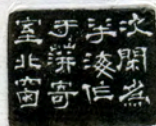 次閑為
半海作
于萍寄
室北窗